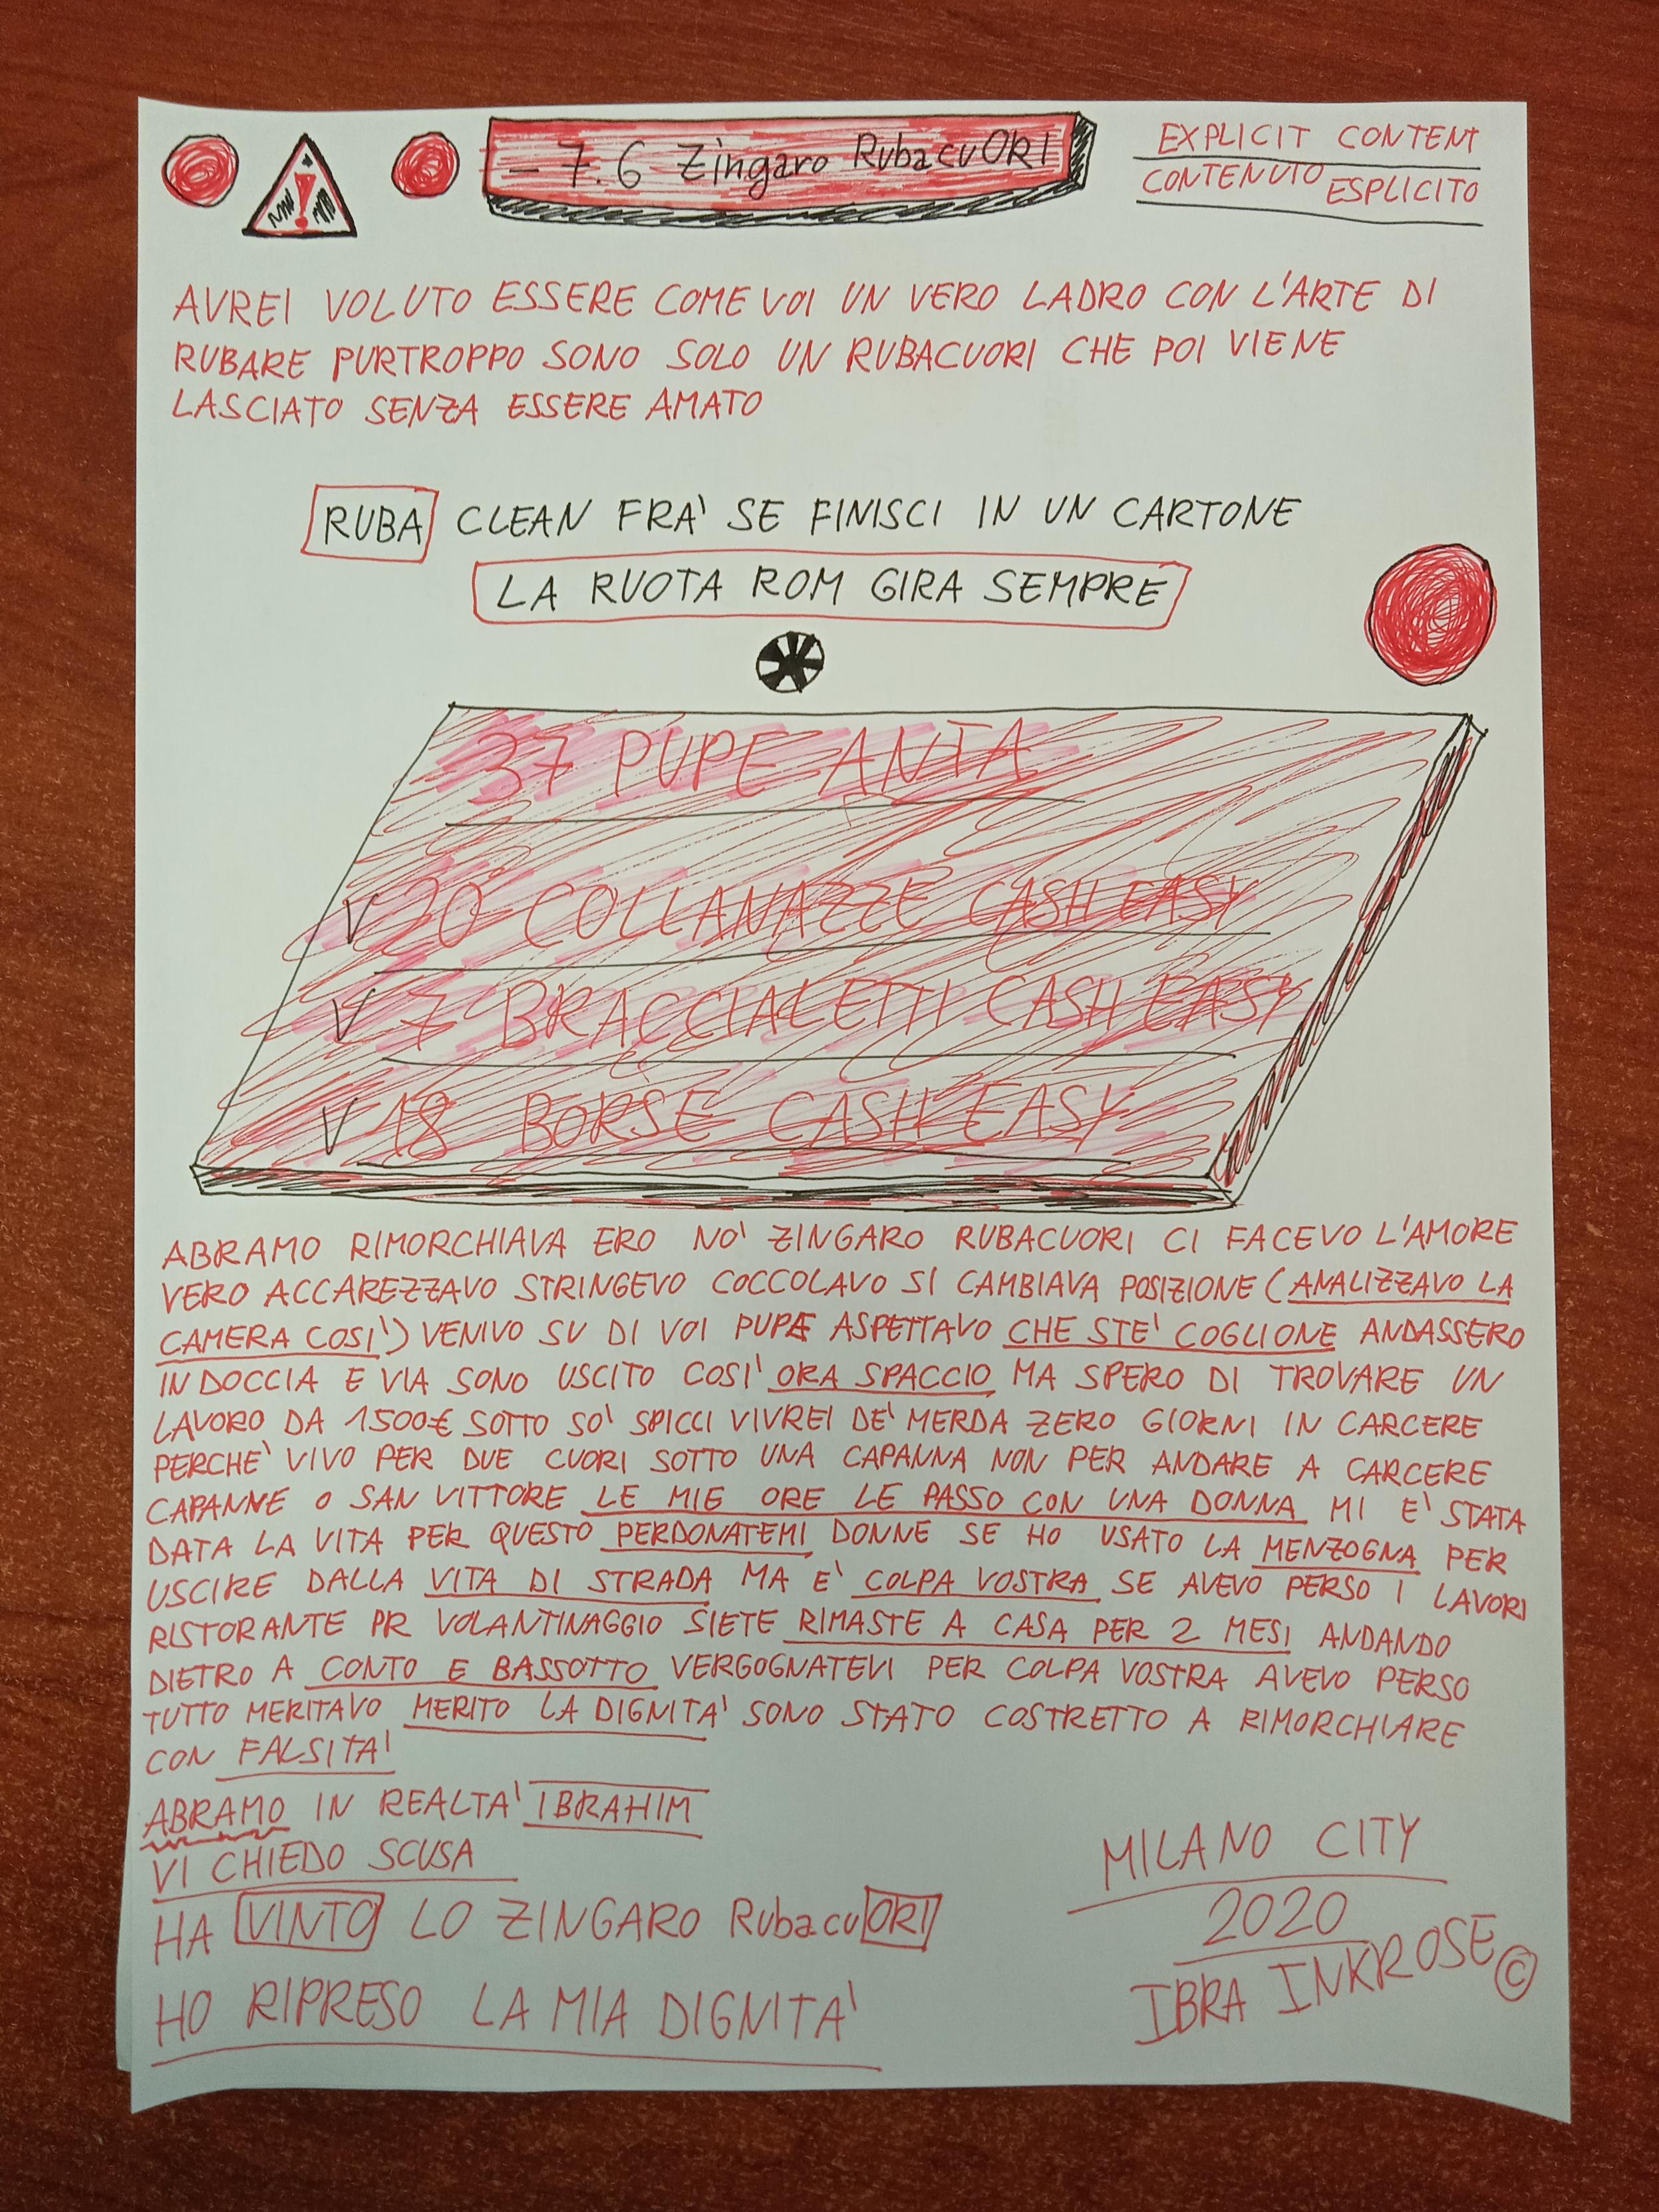 - 7.6 Zingaro RubacuORI
EXPLICIT CONTENT
CONTENUTO ESPLICITO
AVREI VOLUTO ESSERE COME VOI UN VERO LADRO CON L'ARTE DI
RUBARE PURTROPPO SONO SOLO UN RUBACUORI CHE POI VIENE
LASCIATO SENZA ESSERE AMATO
RUBA CLEAN FRA' SE FINISCI IN UN CARTONE
LA RUOTA ROM GIRA SEMPRE
37 PUPE ANTA
V 20 COLLANAZZE CASH EASY
V 7 BRACCIALETTI CASH EASY
V 18 BORSE CASH EASY
ABRAMO RIMORCHIAVA ERO NO' ZINGARO RUBACUORI CI FACEVO L'AMORE
VERO ACCAREZZAVO STRINGEVO COCCOLAVO SI CAMBIAVA POSIZIONE (ANALIZZAVO LA
CAMERA COSI') VENIVO SU DI VOI PUPE ASPETTAVO CHE STE' COGLIONE ANDASSERO
IN DOCCIA E VIA SONO USCITO COSI' ORA SPACCIO MA SPERO DI TROVARE UN
LAVORO DA 1500€ SOTTO SO' SPICCI VIVREI DE' MERDA ZERO GIORNI IN CARCERE
PERCHE' VIVO PER DUE CUORI SOTTO UNA CAPANNA NON PER ANDARE A CARCERE
CAPANNE O SAN VITTORE LE MIE ORE LE PASSO CON UNA DONNA MI E' STATA
DATA LA VITA PER QUESTO PERDONATEMI DONNE SE HO USATO LA MENZOGNA PER
USCIRE DALLA VITA DI STRADA MA E' COLPA VOSTRA SE AVEVO PERSO I LAVORI
RISTORANTE PR VOLANTINAGGIO SIETE RIMASTE A CASA PER 2 MESI ANDANDO
DIETRO A CONTO E BASSOTTO VERGOGNATEVI PER COLPA VOSTRA AVEVO PERSO
TUTTO MERITAVO MERITO LA DIGNITA' SONO STATO COSTRETTO A RIMORCHIARE
CON FALSITA'
ABRAMO IN REALTA' IBRAHIM
VI CHIEDO SCUSA
HA VINTO LO ZINGARO RubacuORI
HO RIPRESO LA MIA DIGNITA'
MILANO CITY
2020
IBRA INKROSE ©